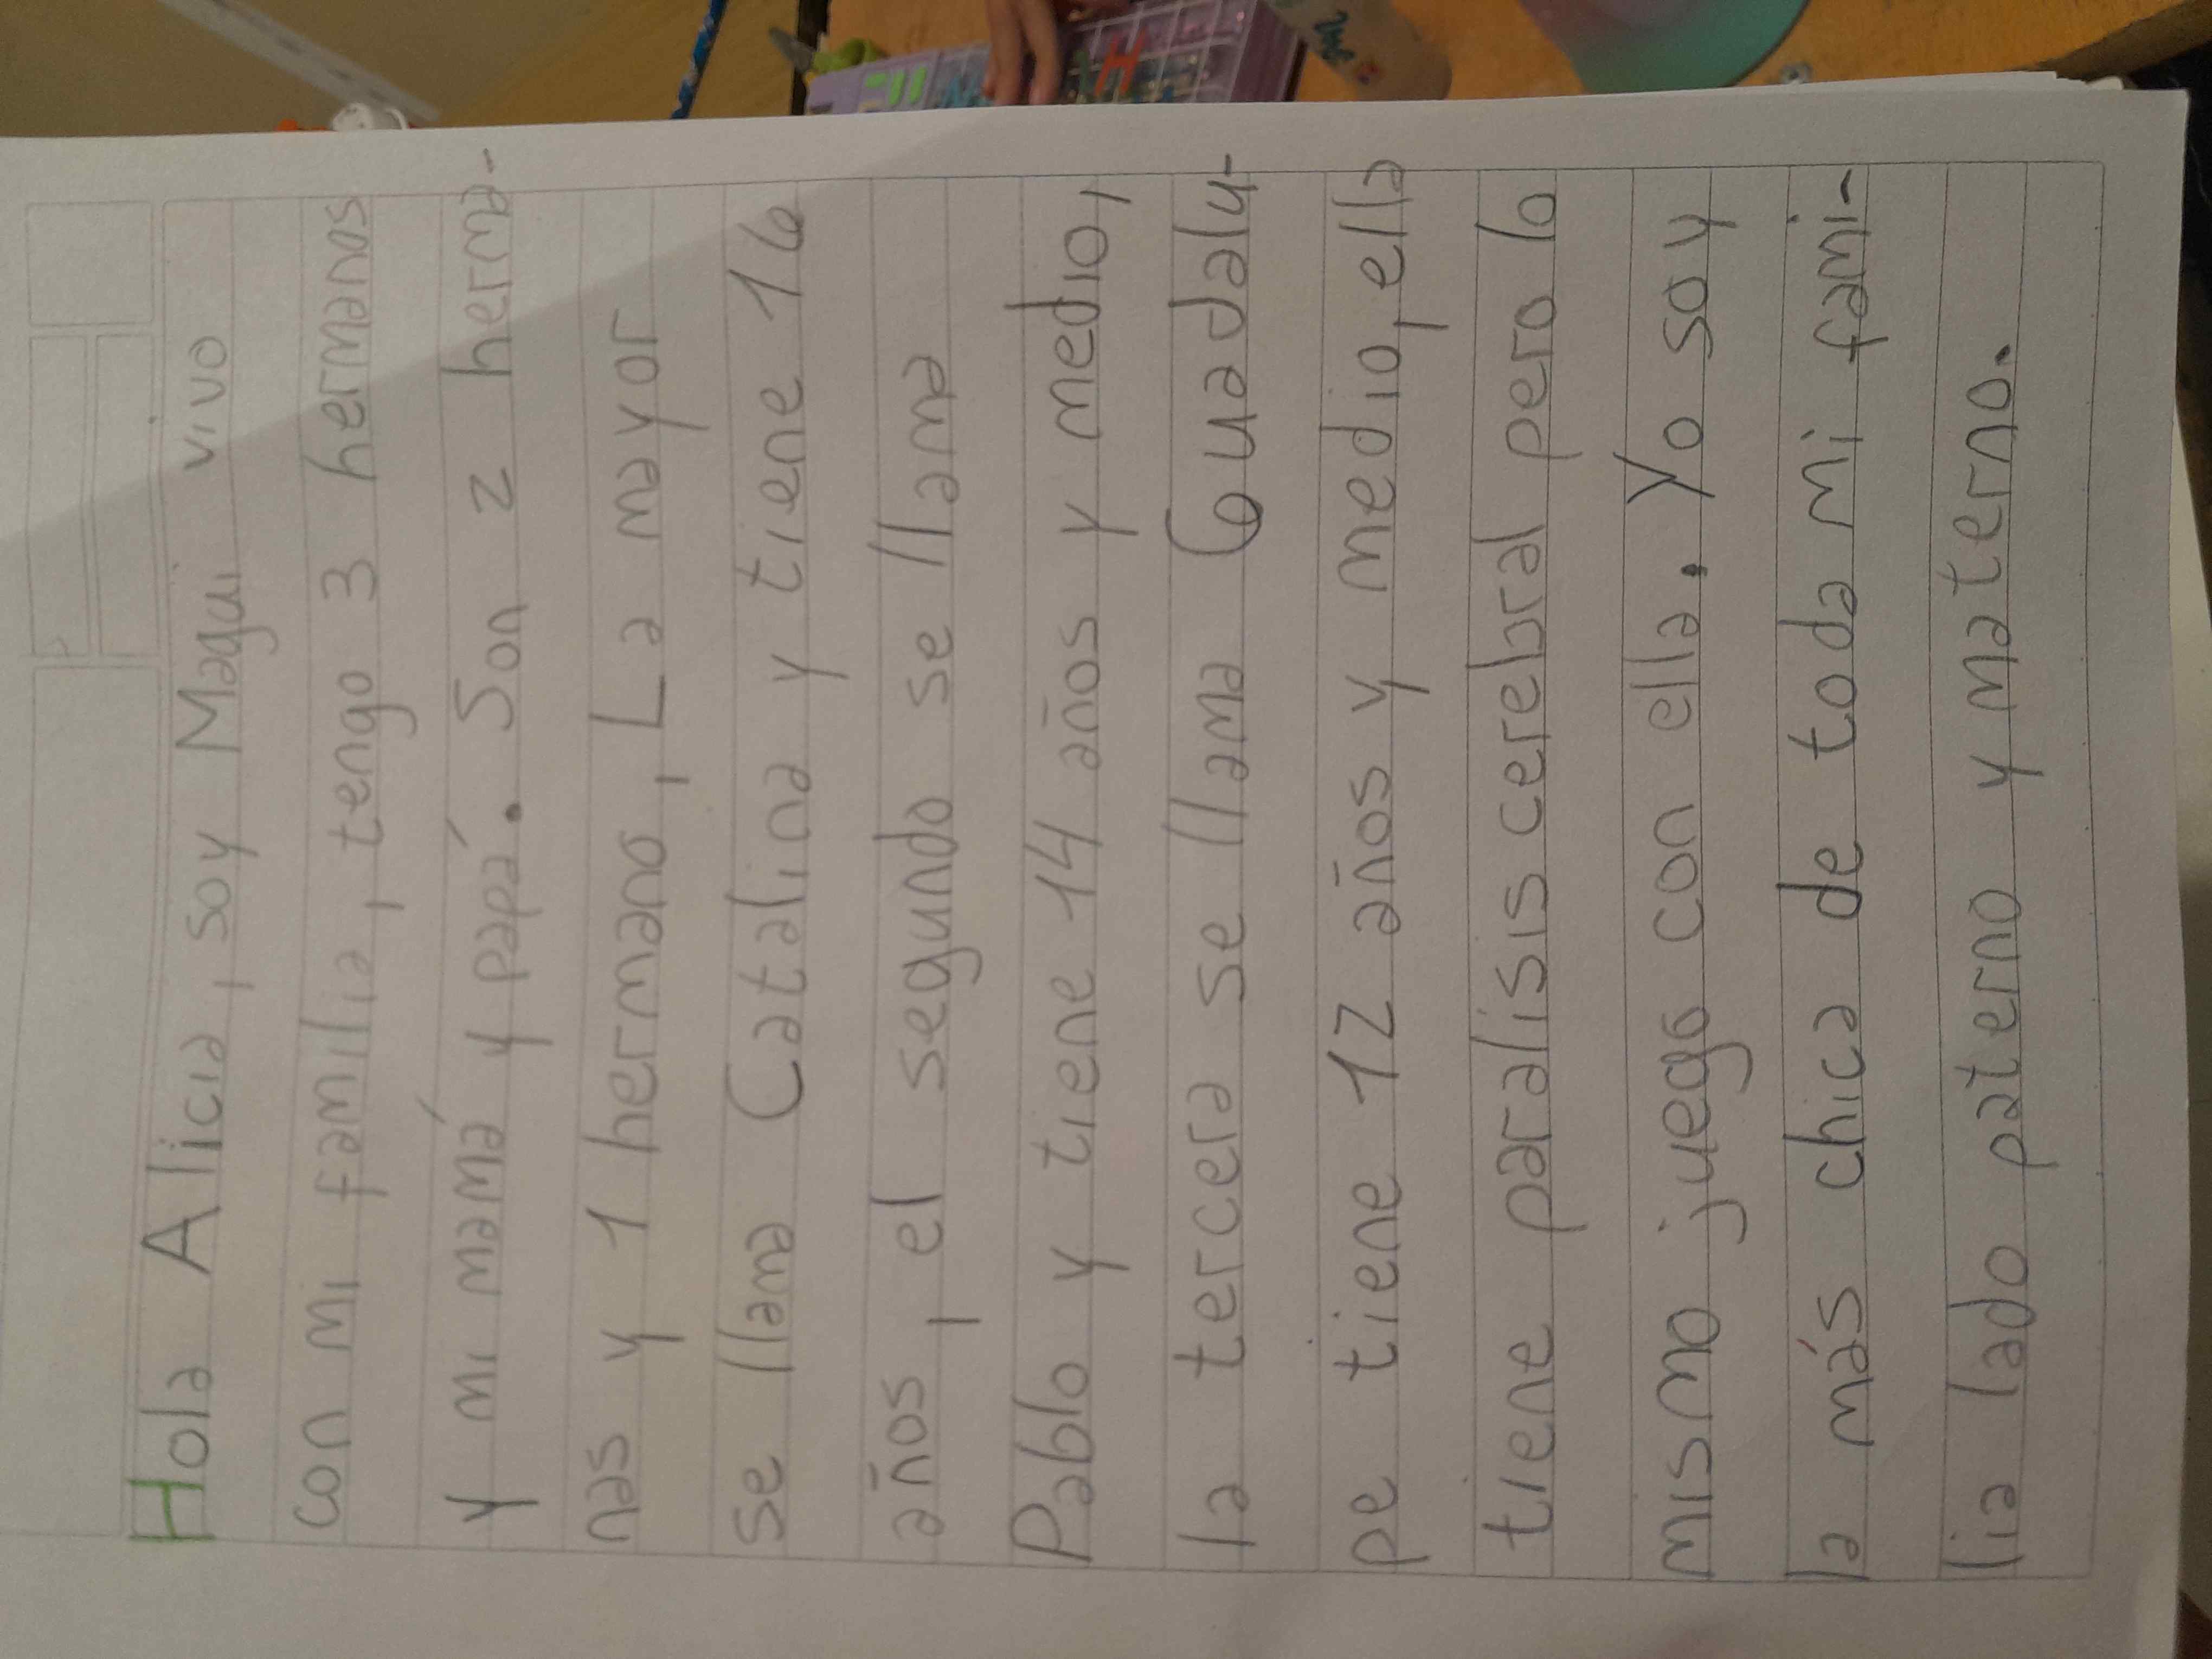 Hola Alicia, soy Magui vivo
con mi familia, tengo 3 hermanos
y mi mamá y papá. Son 2 herma-
nas y 1 hermano, La mayor
se llama Catalina y tiene 16
años, el segundo se llama
Pablo y tiene 14 años y medio,
la tercera se llama Guadalu-
pe tiene 12 años y medio, ella
tiene paralisis cerebral pero lo
mismo juego con ella. Yo soy
la más chica de toda mi fami-
lia lado paterno y materno.